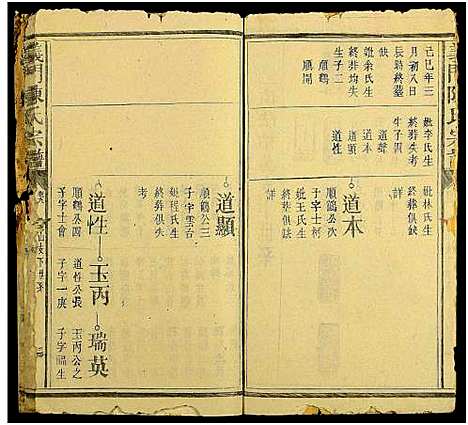 義門陳氏宗譜
己巳年三
月初八日
辰時終墓
缺
妣余氏生
終葬均失
生子二
順鶴
順開
妣李氏生
終葬失考
生子四
道聲
道本
道顯
道性
道本
順鶴公次
子字士柯
妣王氏生
終葬俱缺
詳
妣林氏生
終葬俱缺
詳
道顯
順鶴公三
子字雲吉
妣程氏生
終葬俱失
考
道性
順鶴公四
子字士會
玉丙
道性公長
子字一庚
瑞英
玉丙公之
子字福生
義門陳氏宗譜